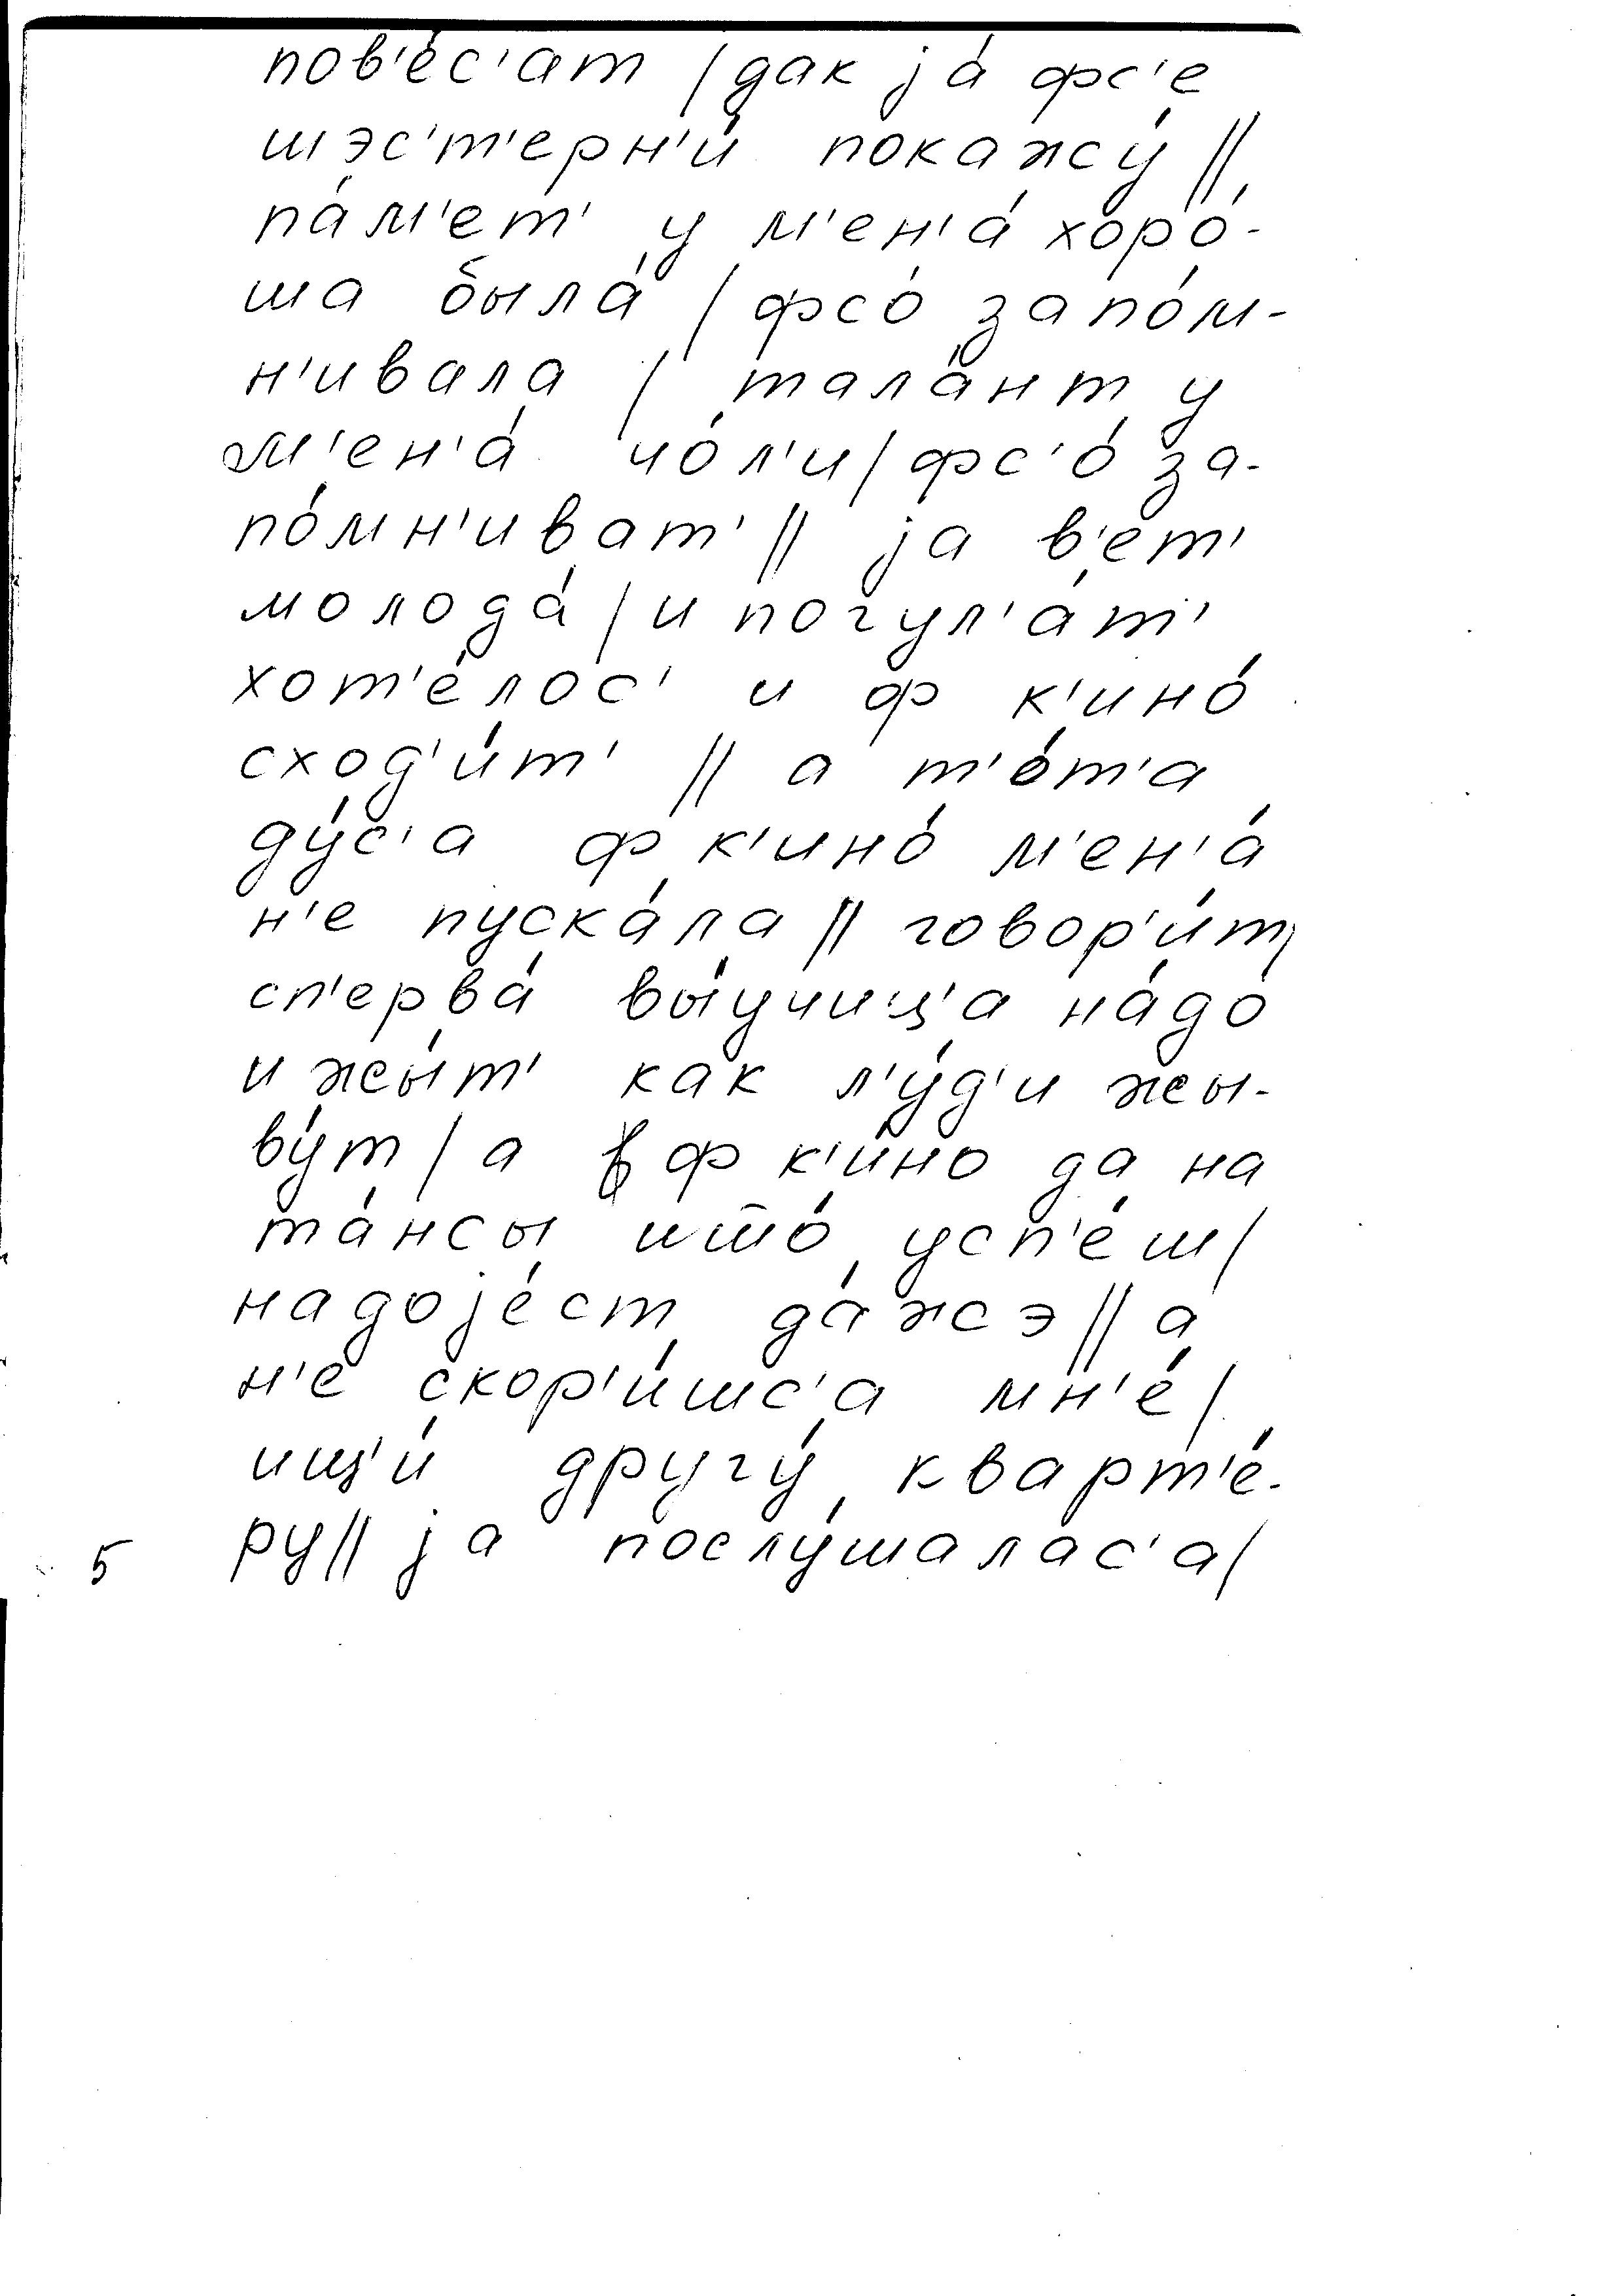 пов'е́с'ат / дак jа́ фс'е
шэс'т'ерн'и́ покажу́ //
па́м'ет' у м'ен'а́ хоро́-
ша была́ / фсо́ запо́м-
н'ивала / тала́нт у
м'ен'а́ чо́л'и / фс'о́ за-
по́мн'иват' // jа в'ет'
молода́ / и погул'а́т'
хот'е́лос' и ф к'ино́
сход'и́т' // а т'о́т'а
ду́с'а ф к'ино́ м'ен'а́
н'е пуска́ла // говор'и́т
сп'ерва́ вы́учиц'а на́до
и жы́т' как л'у́д'и жы-
ву́т / а ф к'ино́ да на
та́нсы што́ усп'е́ш /
надоjе́ст да́жэ // а
н'е скор'и́шс'а мн'е́ /
ищ'и́ другу́ кварт'е́-
5 ру // jа послу́шалас'а /